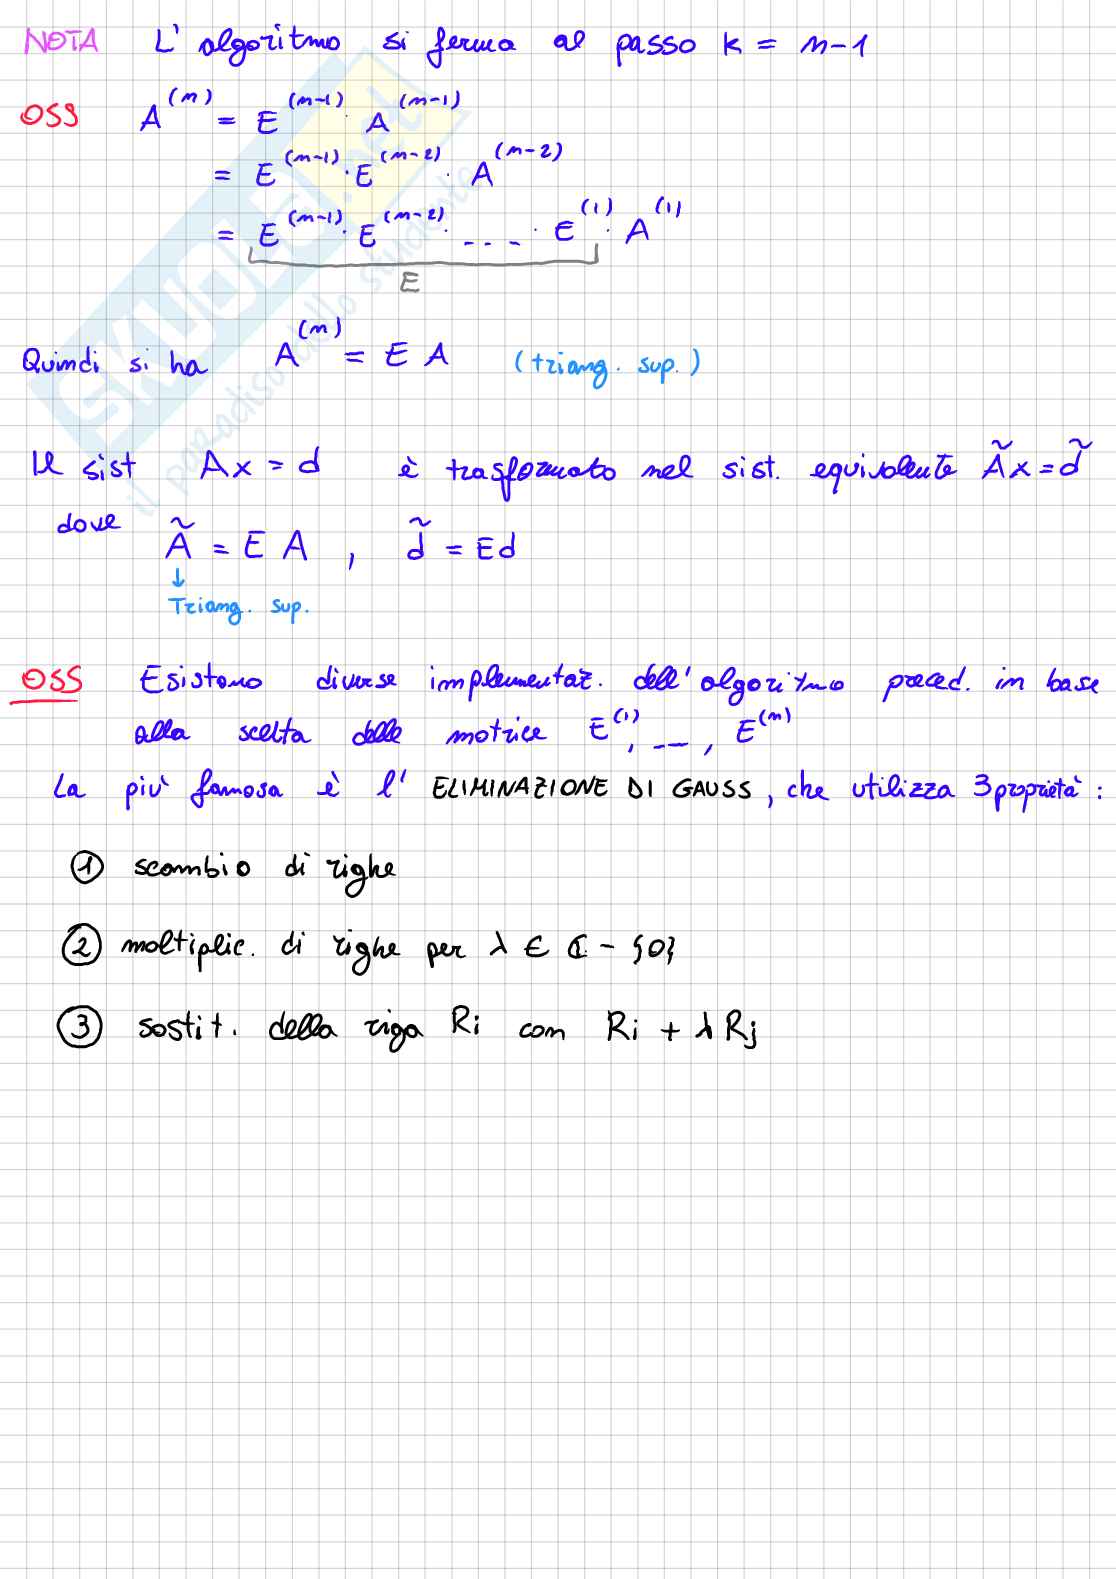 NOTA L'algoritmo si ferma al passo k = n-1
OSS A^(n) = E^(n-1) · A^(n-1)
= E^(n-1) · E^(n-2) · A^(n-2)
= E^(n-1) · E^(n-2) · .... · E^(1) · A^(1)
E
Quindi si ha A^(n) = E A (triang. sup.)
Il sist Ax = d è trasformato nel sist. equivalente Ãx = d̃
dove Ã = E A , d̃ = Ed
↓
Triang. sup.
OSS Esistono diverse implementaz. dell'algoritmo preced. in base
alla scelta delle matrice E^(1), ---, E^(n)
La più famosa è l'ELIMINAZIONE DI GAUSS, che utilizza 3 proprietà:
① scambio di righe
② moltiplic. di righe per λ ∈ ℂ - {0}
③ sostit. della riga Ri con Ri + λ Rj
SKUOLA.net
il paradiso dello studente